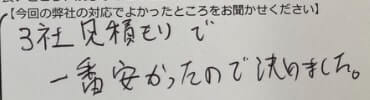 【今回の弊社の対応でよかったところをお聞かせください】
3社見積もりで
一番安かったので決めました。